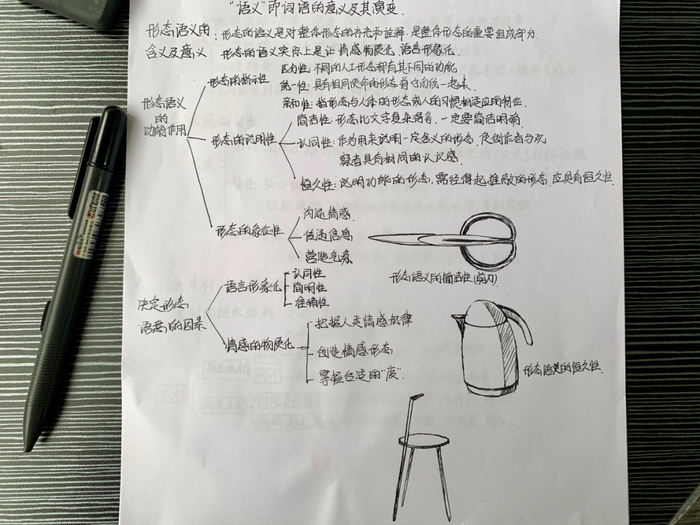 "语义"即词语的意义及其演变.
形态语义的含义及意义
: 形态的语义是对整体形态的存在和诠释.是整体形态的重要组成部分.
形态的语义实际上是让情感物质化 语言形象化.
形态语义的功能作用
形态的指示性
区分性: 不同的人工形态都有其不同的功能
统一性: 具有相同使命的形态
亲和性: 指形态与人体的形态或人的习惯相适应的特征.
形态的说明性
简洁性: 形态比文字复杂得多.一定要简洁明确
认同性: 作为用来说明一定含义的形态,
察者具有相同的认识感.
恒久性: 说明功能的形态, 需经得起推敲的形态, 应具有恒久性.
形态的象征性
沟通情感
传递信息
营造气氛
形态语义的简洁性(剪刀)
决定形态语意的因素
语言形象化
认同性
简明性
准确性
情感的物质化
把握人类情感规律
创造情感形态
掌握合适的"度"
形态语意的恒久性